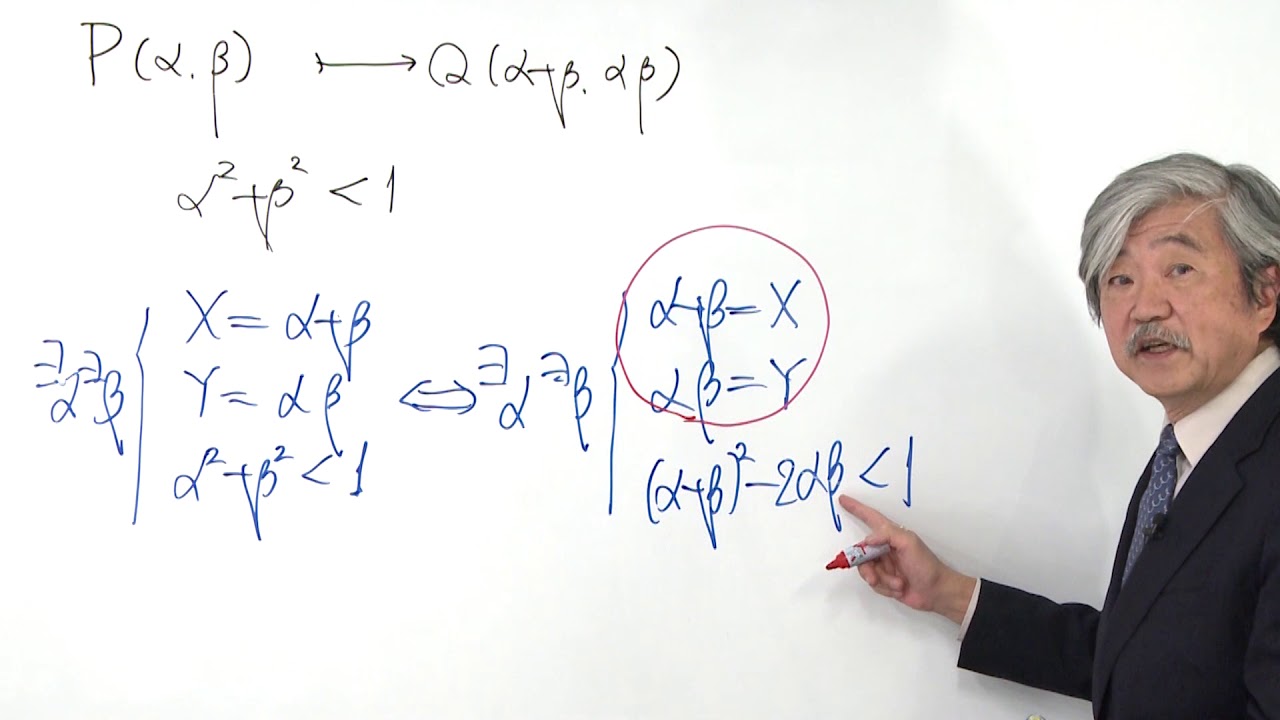 P(α, β) ⟼ Q(α+β, αβ)
α²+β² < 1
∃α ∃β { X = α+β
Y = αβ
α²+β² < 1
⟺ ∃α ∃β { α+β = X
αβ = Y
(α+β)² − 2αβ < 1